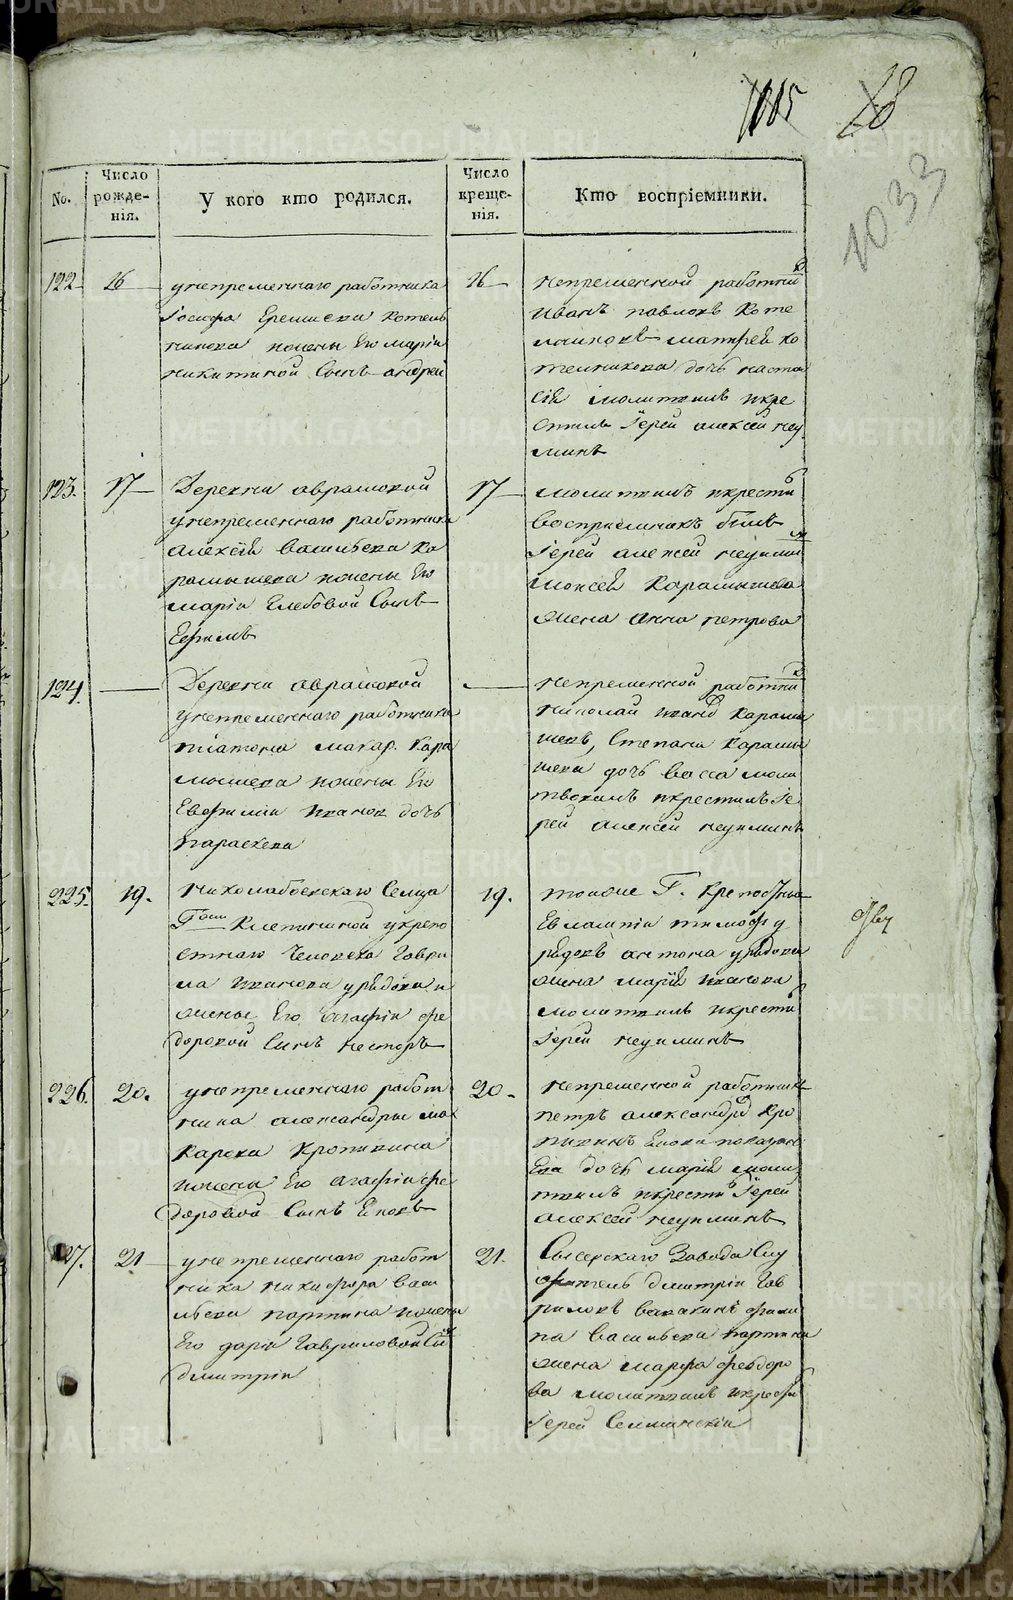 1115
28
1033
No.
Число рожденія.
У кого кто родился.
Число крещенія.
Кто воспріемники.
122 16
унепременнаго работника
Іосифа Еремиева Котель
никова ижены Его маріи
никитиной Сынъ андрей
16
непременной работни
Иванъ павловъ Коте
лниковъ матфея ко
телникова дочь наста
сія молитвилъ икре
стилъ Іерей алексей неу
минъ
123. 17
Деревни аврамовой
унепременнаго работника
алексея васильева Ка
рамышева ижены Его
маріи Глебовой Сынъ
Ефимъ
17
молитвилъ икрести
воспріемникъ былъ
Іерей алексей неумин
моисея Карамышева
жена анна петрова
124.
Деревни аврамовой
унепременнаго работника
платона макар. Кара
мышева ижены Его
Евфиміи иванов дочь
параскева
непременной работни
николай иванов Карамы
шевъ, Степана Карамы
шева дочь васса моли
твовалъ икрестилъ Іе
рей алексей неуминъ
225. 19.
николаевскаго Селца
Клепининой укрепо
стнаго Человека Гаври
ла иванова урядова и
жены Его агафіи фе
доровой Сынъ несторъ
19.
тойже Г. крепостны
Евлампіи тимофе у
рядовъ антона урядова
жена марія иванова
молитвилъ икрести
Іерей неуминъ
226. 20.
унепременнаго работ
ника александры ма
карова Кропивина
ижены Его агафіи фе
доровой Сынъ Енохъ
20.
непременной работникъ
петръ александров Кро
пивинъ
дочь марія моли
твилъ икрести Іерей
алексей неуминъ
127. 21
унепременнаго работ
ника никифора васи
льева партина ижены
Его даріи Гавриловой Сы
дмитріи
21.
Сысерскаго Завода Слу
житель дмитріи Гав
риловъ
на васильева партина
жена марфа федоро
ва молитвилъ икрести
Іерей Селмински